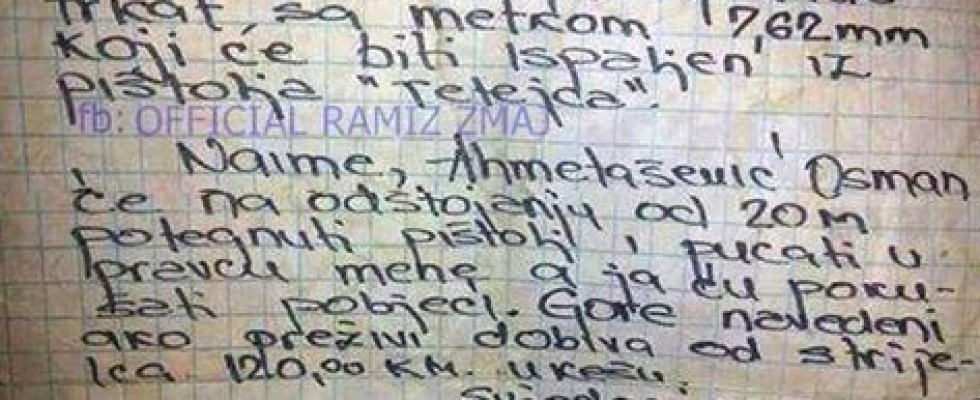 trkat, sa metkom 7,62mm
koji će biti ispaljen iz
pištolja "Tetejca".
fb: OFFICIAL RAMIZ ZMAJ
Naime, Ahmetašević Osman
će na odstojanju od 20m
potegnuti pištolj i pucati u
pravcu mene a ja ću poku-
šati pobjeći. Gore navedeni
ako preživi dobiva od strije-
lca 120,00 KM. u kešu.